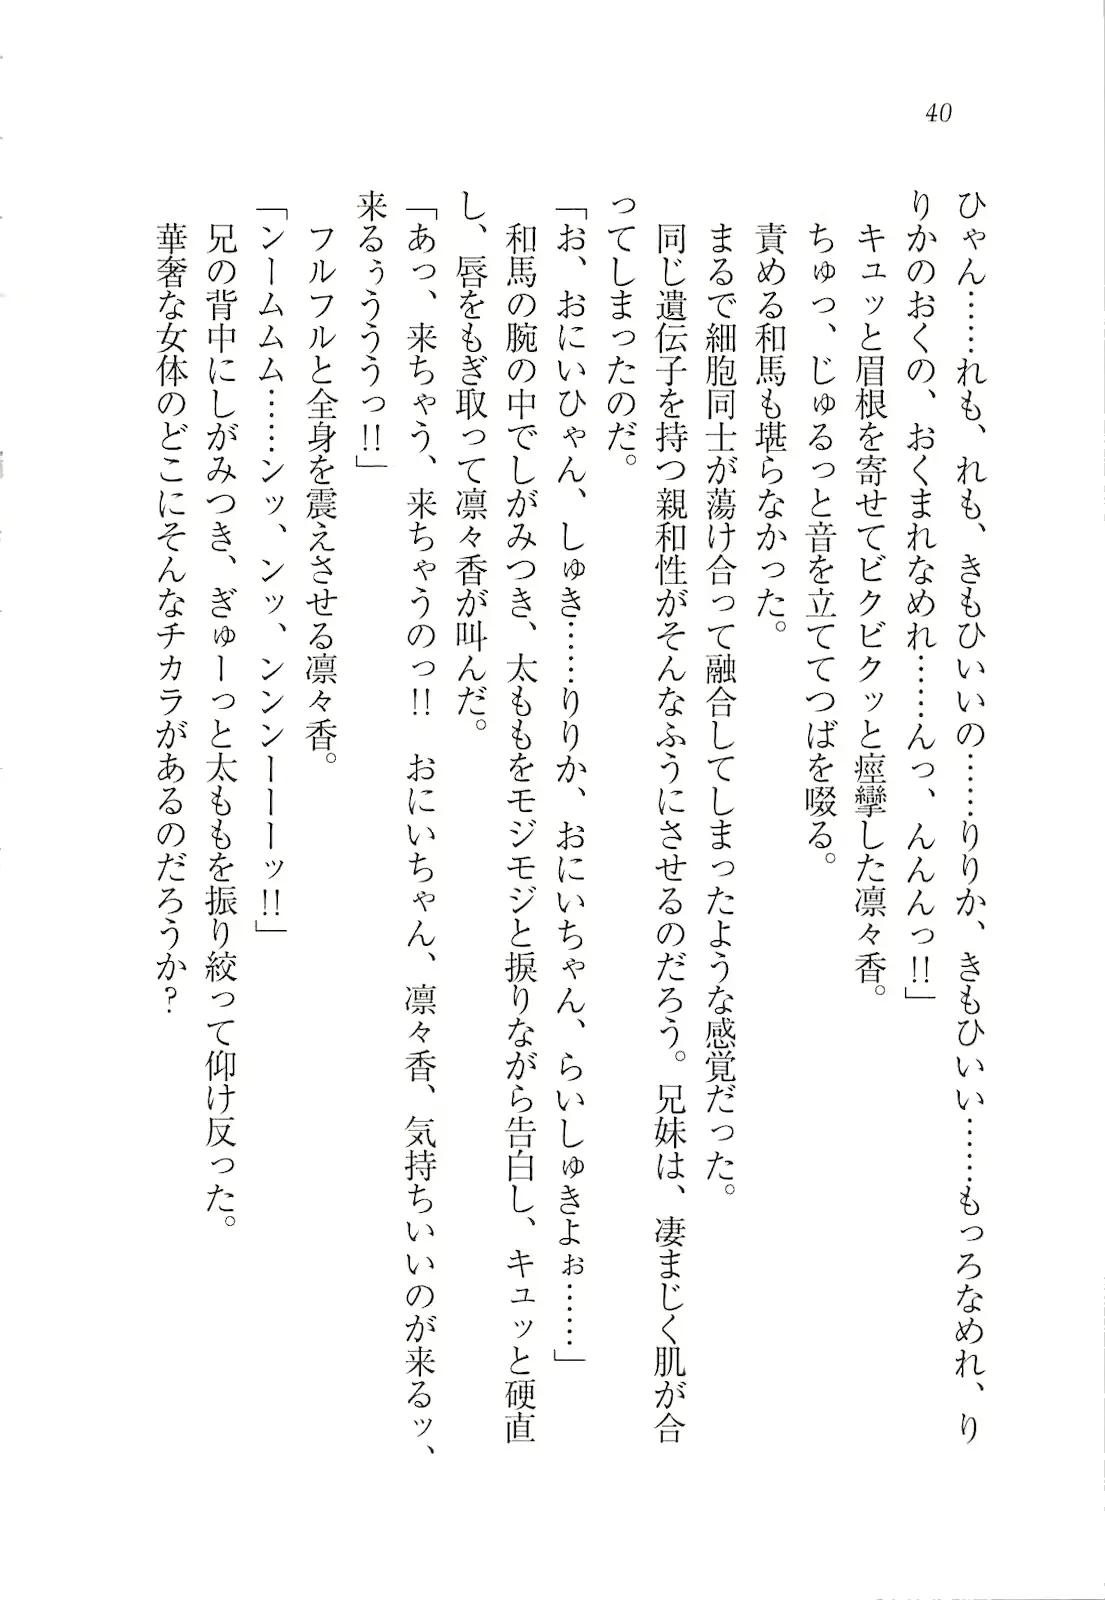 40
ひゃん……れも、れも、きもひいいの……りりか、きもひいい……もっろなめれ、り
りかのおくの、おくまれなめれ……んっ、んんんっ!!」
キュッと眉根を寄せてビクビクッと痙攣した凛々香。
ちゅっ、じゅるっと音を立ててつばを啜る。
責める和馬も堪らなかった。
まるで細胞同士が蕩け合って融合してしまったような感覚だった。
同じ遺伝子を持つ親和性がそんなふうにさせるのだろう。兄妹は、凄まじく肌が合
ってしまったのだ。
「お、おにいひゃん、しゅき……りりか、おにいちゃん、らいしゅきよぉ……」
和馬の腕の中でしがみつき、太ももをモジモジと捩りながら告白し、キュッと硬直
し、唇をもぎ取って凛々香が叫んだ。
「あっ、来ちゃう、来ちゃうのっ!!　おにいちゃん、凛々香、気持ちいいのが来るッ、
来るぅううっ!!」
フルフルと全身を震えさせる凛々香。
「ンームムム……ンッ、ンッ、ンンンーーーッ!!」
兄の背中にしがみつき、ぎゅーっと太ももを振り絞って仰け反った。
華奢な女体のどこにそんなチカラがあるのだろうか?